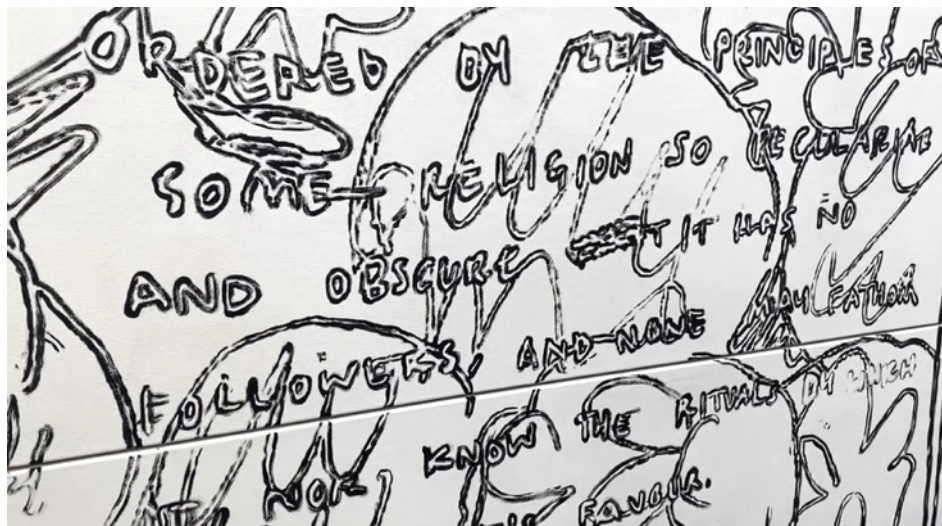 ORDERED BY THE PRINCIPLES OF
SOME RELIGION SO
AND OBSCURE THAT IT HAS NO
FOLLOWERS AND NONE MAY FATHOM
IT NOR KNOW THE RITUALS BY WHICH
ITS FAVOUR.